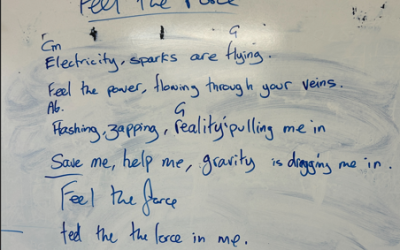 Feel the Force
Cm G
Electricity, sparks are flying.
Feel the power, flowing through your veins.
Ab. G
flashing, zapping, reality's pulling me in
Save me, help me, gravity is dragging me in.
Feel the force
feel the the force in me.